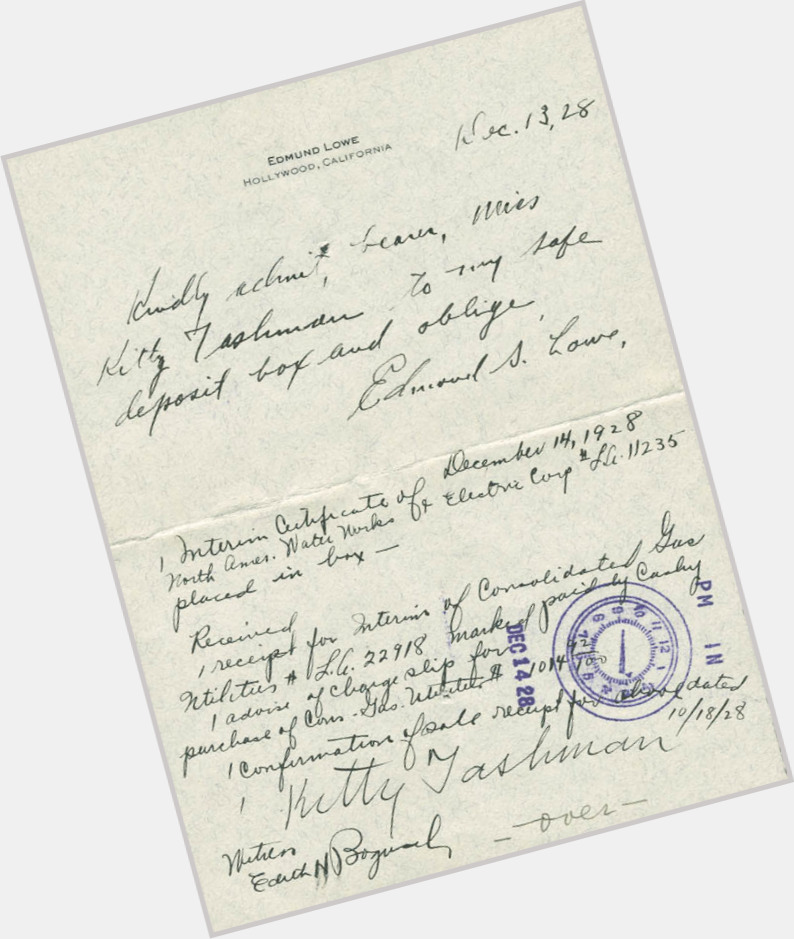 EDMUND LOWE
HOLLYWOOD, CALIFORNIA
Dec. 13, 28
Kindly admit, bearer, Miss
Kitty Tashman to my safe
deposit box and oblige,
Edmund S. Lowe,
December 14, 1928
1 Interim Certificate of
North Amer. Water Works & Electric Corp # L.A. 11235
placed in box —
Received
1 receipt for Interim of Consolidated Gas
Utilities # L.A. 22918 marked paid by
1 advise of charge slip for
purchase of Cons. Gas. Utilities # 1014
1 Confirmation of sale receipt for
10/18/28
1 Kitty Tashman
Witness
Edith H
— over —
DEC 14 28
PM IN
7 8 9 10 11 12 1